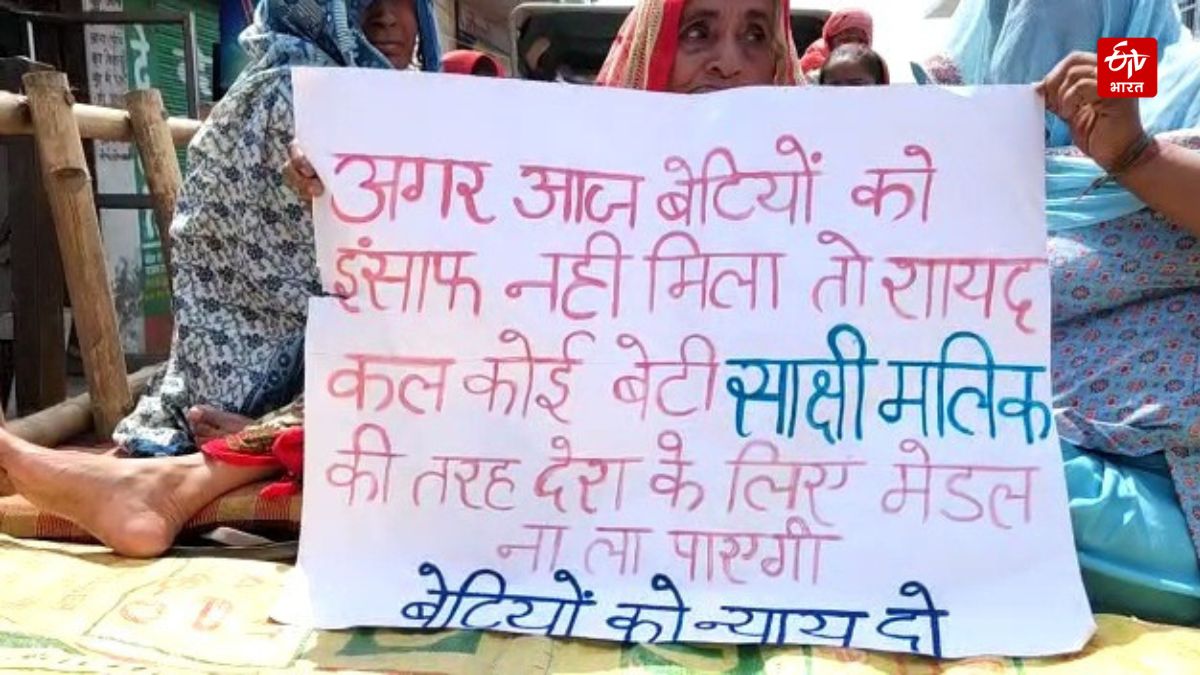 ETV
भारत
अगर आज बेटियों को
इंसाफ नही मिला तो शायद
कल कोई बेटी साक्षी मलिक
की तरह देश के लिए मेडल
ना ला पाएगी
बेटियों को न्याय दो